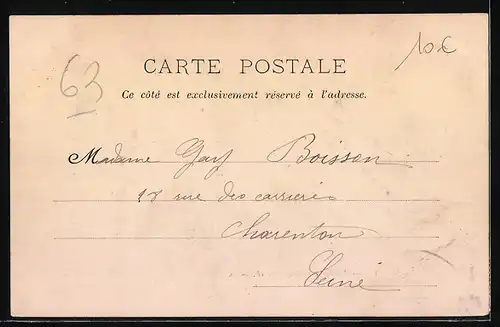 63
10.€
CARTE POSTALE
Ce côté est exclusivement réservé à l'adresse.
Madame Gay Boisson
18 rue des carrieres
Charenton
Seine